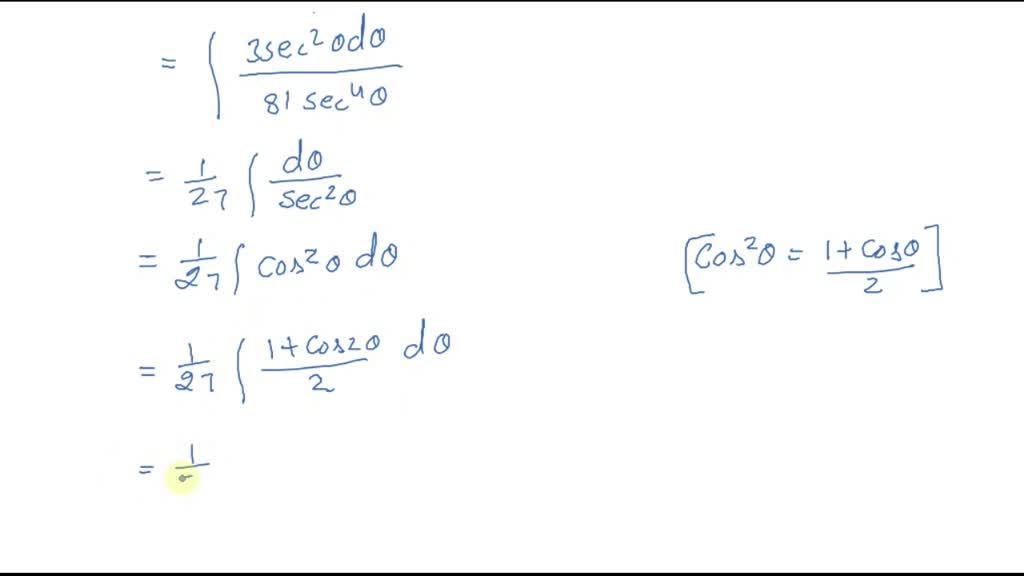 = ∫ 3sec²θdθ / 81 sec⁴θ
= 1/27 ∫ dθ / sec²θ
= 1/27 ∫ cos²θ dθ
[Cos²θ = 1+Cosθ / 2]
= 1/27 ∫ 1+Cos2θ / 2 dθ
= 1/